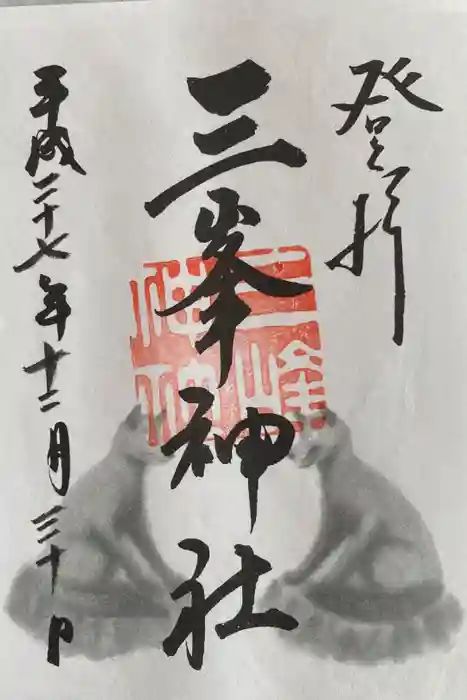 登拝
三峯神社
平成二十七年十二月三十日
三峰
神社